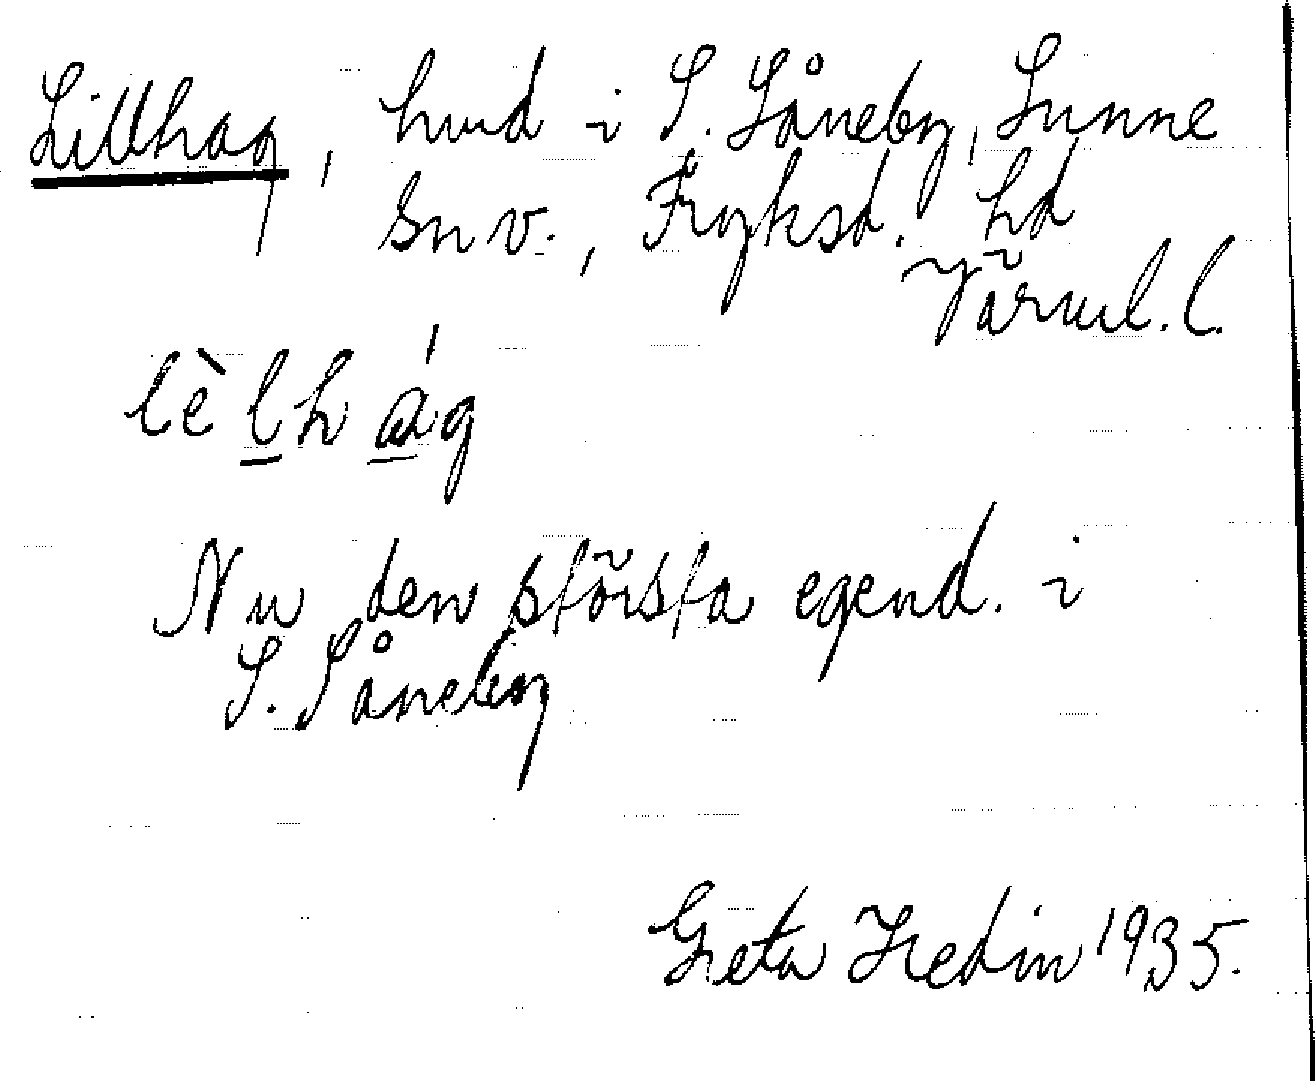 Lillhag, hmd i S. Såneby, Sunne
sn v., Fryksd. hd
Värml. l.
lèlhág
Nu den största egend. i
S. Såneby
Greta Hedin 1935.